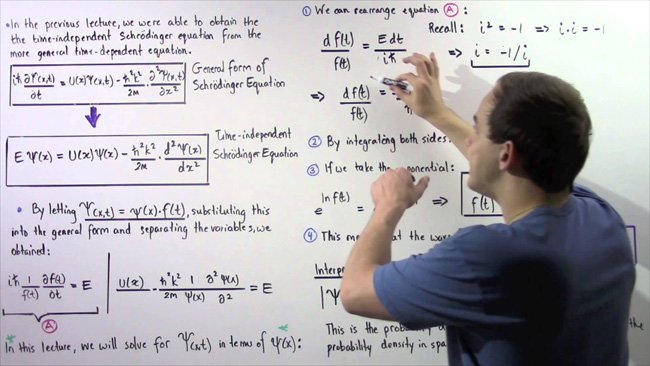 • In the previous lecture, we were able to obtain the
the time-independent Schrödinger equation from the
more general time-dependent equation.
iħ ∂Ψ(x,t)/∂t = U(x)Ψ(x,t) - ħ²k²/2m · ∂²Ψ(x,t)/∂x²
General form of
Schrödinger Equation
E ψ(x) = U(x)ψ(x) - ħ²k²/2m · d²ψ(x)/dx²
Time-independent
Schrödinger Equation
• By letting Ψ(x,t) = ψ(x)·f(t), substituting this
into the general form and separating the variables, we
obtained:
iħ 1/f(t) ∂f(t)/∂t = E | U(x) - ħ²k²/2m 1/ψ(x) ∂²ψ(x)/∂² = E
A
* In this lecture, we will solve for Ψ(x,t) in terms of ψ(x): *
① We can rearrange equation Ⓐ:
df(t)/f(t) = E dt/iħ
Recall: i² = -1 => i·i = -1
=> i = -1/i
=> df(t)/f(t) =
② By integrating both sides
③ If we take the exponential:
e^ln f(t) = => f(t)
④ This that the
|Ψ
This is the probability
the
probability density in